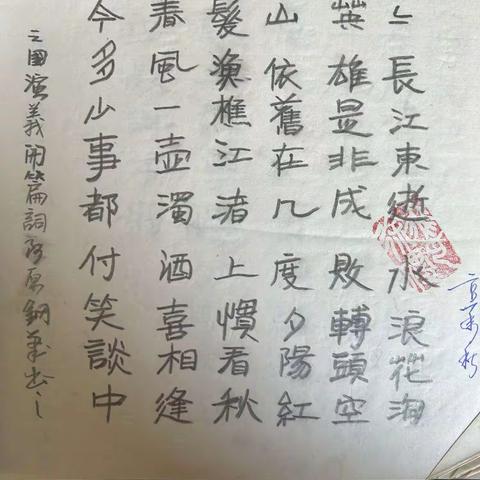 長江東逝水浪花淘
英雄是非成敗轉頭空
山依舊在几度夕陽紅
髮漁樵江渚上慣看秋
春風一壺濁酒喜相逢
今多少事都付笑談中
三國演義開篇詞鋼筆